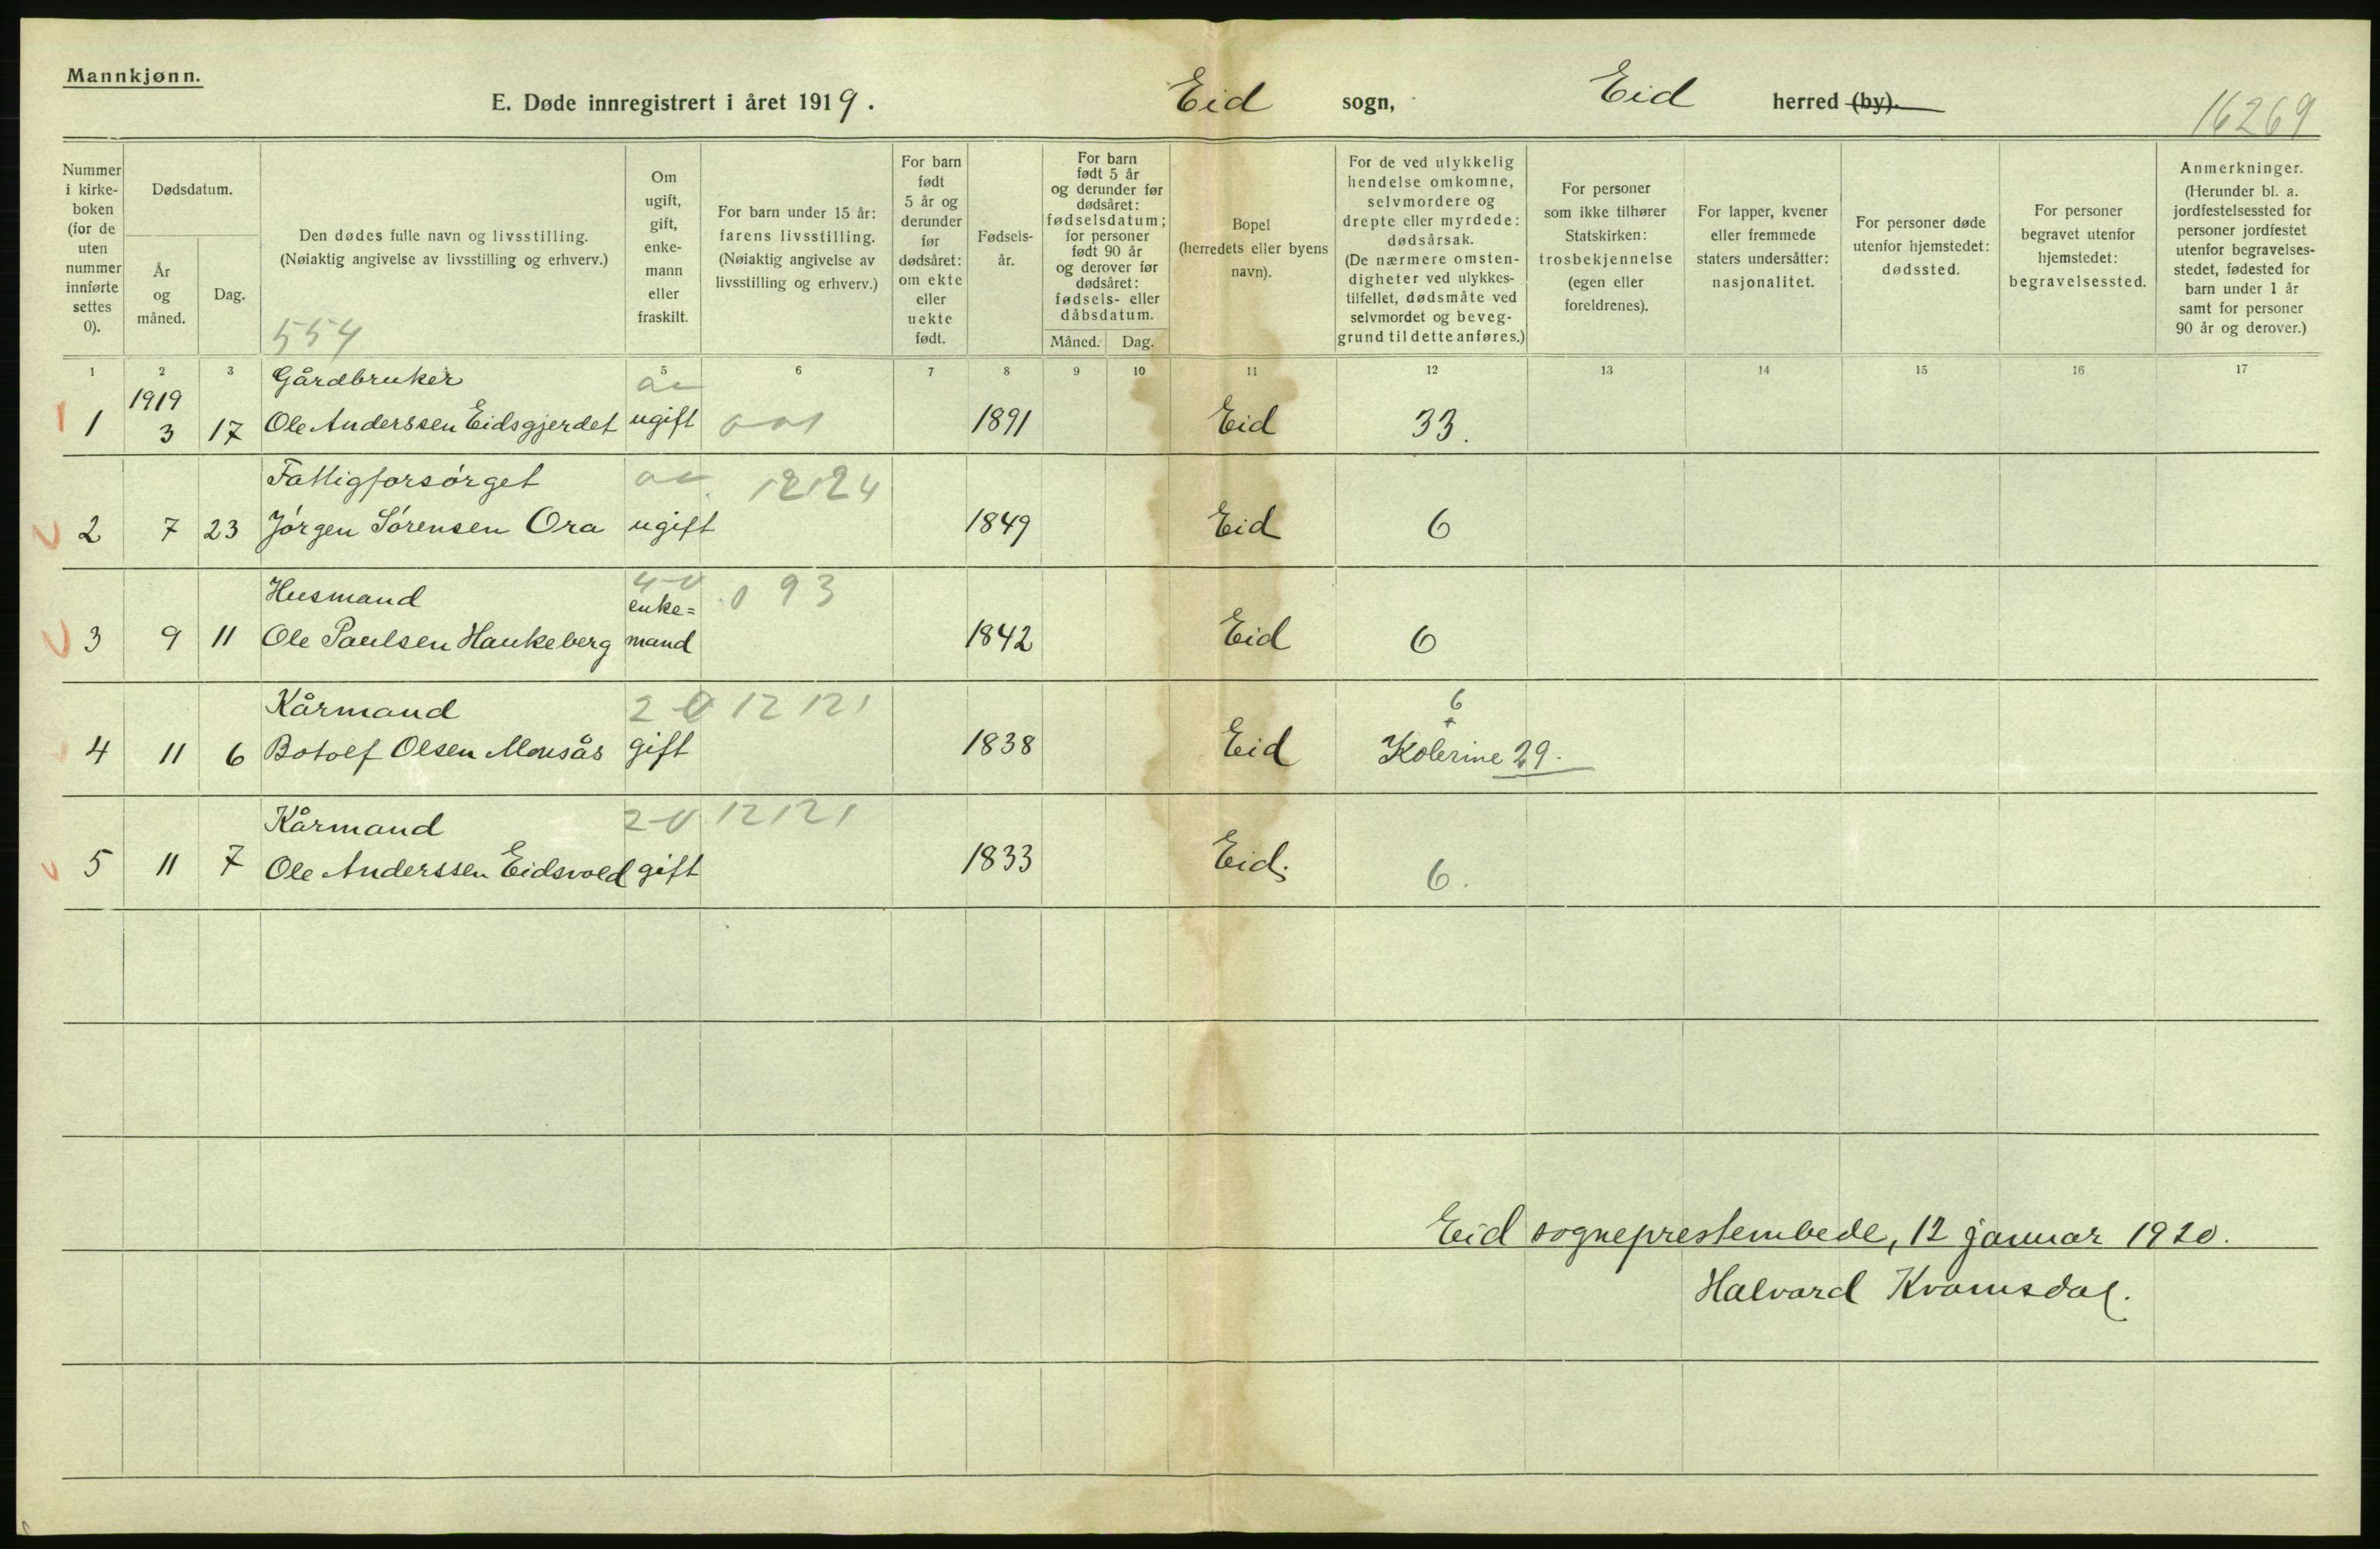 Mannkjønn.
E. Døde innregistrert i året 1919. Eid sogn, Eid herred (by).
16269
Nummer i kirke-boken (for de uten nummer innførte settes 0).
Dødsdatum.
År og måned.
Dag.
Den dødes fulle navn og livsstilling.
(Nøiaktig angivelse av livsstilling og erhverv.)
554
Om ugift, gift, enke-mann eller fraskilt.
For barn under 15 år: farens livsstilling.
(Nøiaktig angivelse av livsstilling og erhverv.)
For barn født 5 år og derunder før dødsåret: om ekte eller uekte født.
Fødsels-år.
For barn født 5 år og derunder før dødsåret: fødselsdatum; for personer født 90 år og derover før dødsåret: fødsels- eller dåbsdatum.
Måned. Dag.
Bopel (herredets eller byens navn).
For de ved ulykkelig hendelse omkomne, selvmordere og drepte eller myrdede: dødsårsak.
(De nærmere omsten-digheter ved ulykkes-tilfellet, dødsmåte ved selvmordet og beveg-grund til dette anføres.)
For personer som ikke tilhører Statskirken: trosbekjennelse (egen eller foreldrenes).
For lapper, kvener eller fremmede staters undersåtter: nasjonalitet.
For personer døde utenfor hjemstedet: dødssted.
For personer begravet utenfor hjemstedet: begravelsessted.
Anmerkninger.
(Herunder bl. a. jordfestelsessted for personer jordfestet utenfor begravelses-stedet, fødested for barn under 1 år samt for personer 90 år og derover.)
1 2 3 5 6 7 8 9 10 11 12 13 14 15 16 17
1919 Gårdbruker
1 3 17 Ole Anderssen Eidsgjerdet ugift 1891 Eid 33.
Fattigforsørget 12124
2 7 23 Jørgen Sørensen Ora ugift 1849 Eid 6
Husmand enke= 093
3 9 11 Ole Paulsen Haukeberg mand 1842 Eid 6
Kårmand 20 12121 6
4 11 6 Botolf Olsen Monsås gift 1838 Eid Kolerine 29.
Kårmand 20 12121
5 11 7 Ole Anderssen Eidsvold gift 1833 Eid. 6.
Eid sogneprestembede, 12 januar 1920.
Halvard Kvamsdal.